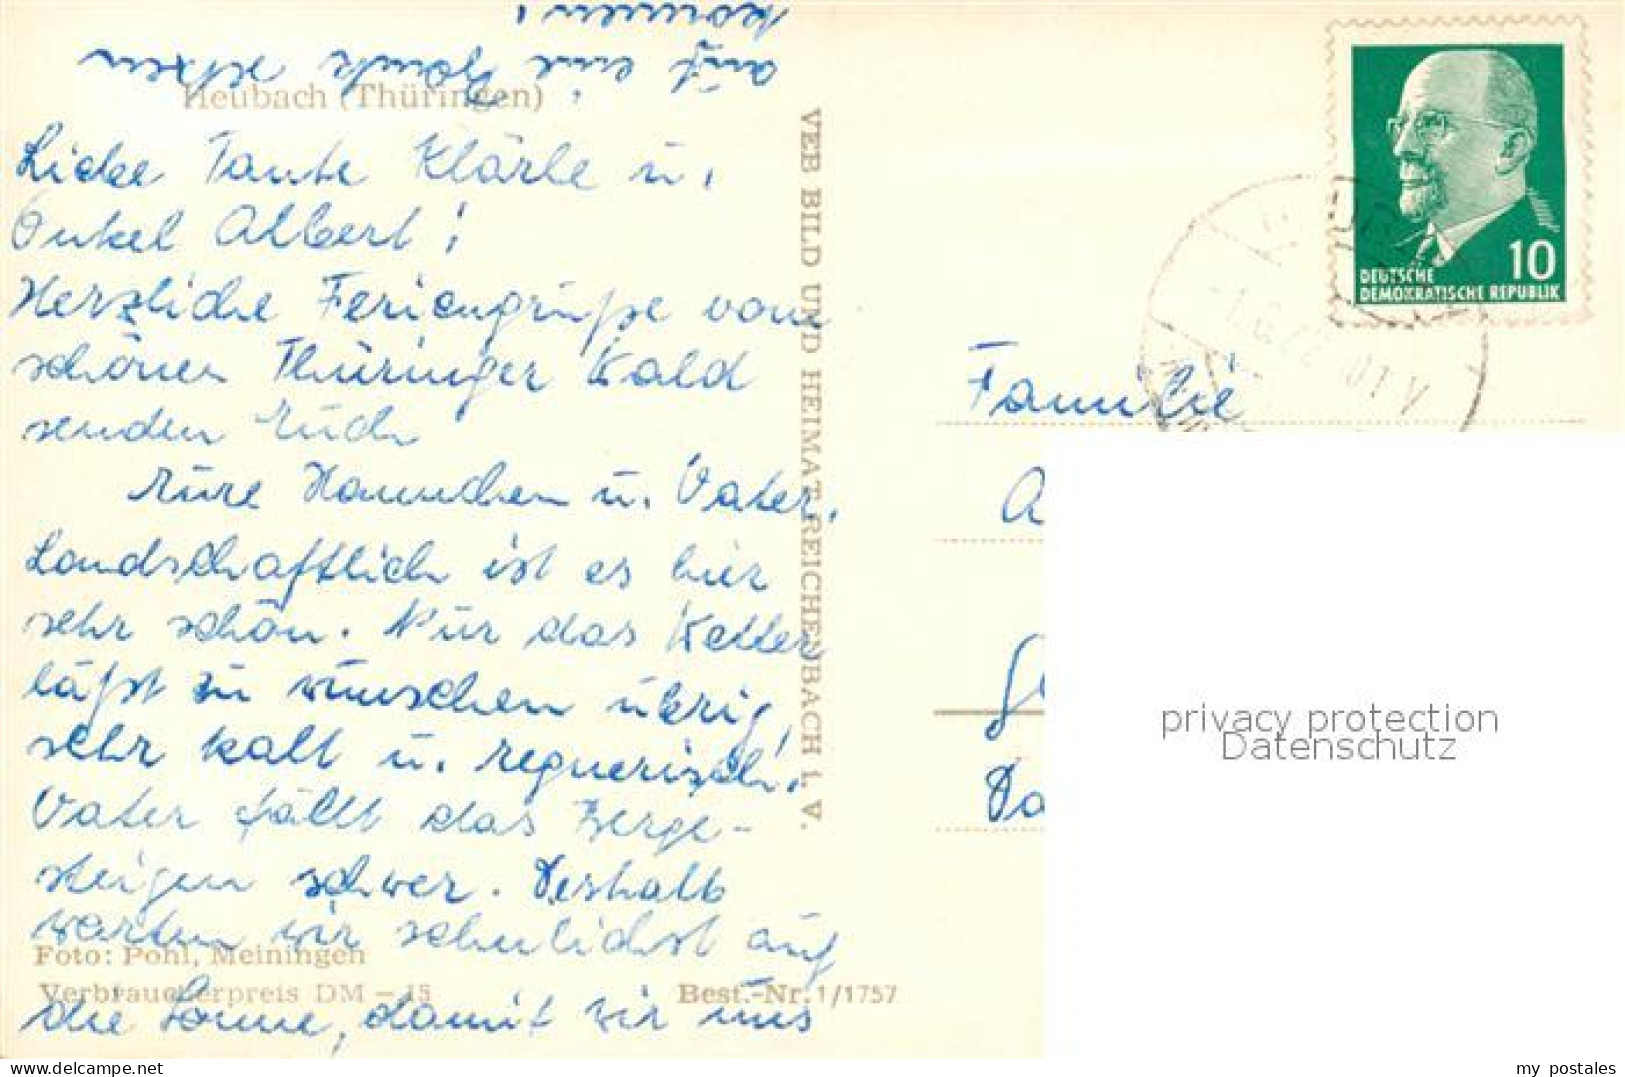 Heubach (Thüringen)
Liebe Tante Klärle u.
Onkel Albert!
Herzliche Feriengrüße vom
schönen Thüringer Wald
senden Euch
Eure Hannchen u. Vater.
Landschaftlich ist es hier
sehr schön. Nur das Wetter
läßt zu wünschen übrig,
sehr kalt u. regnerisch.
Vater fällt das Berge-
steigen schwer. Deshalb
warten wir sehnlichst auf
die Sonne, damit wir uns
auf eine Bank setzen
können!
Foto: Pohl, Meiningen
Verbraucherpreis DM –15
Best.-Nr. 1/1757
VEB BILD UND HEIMAT REICHENBACH I. V.
10
DEUTSCHE
DEMOKRATISCHE REPUBLIK
Familie
A
Da
privacy protection
Datenschutz
www.ansichtskarten-center.de
my postales